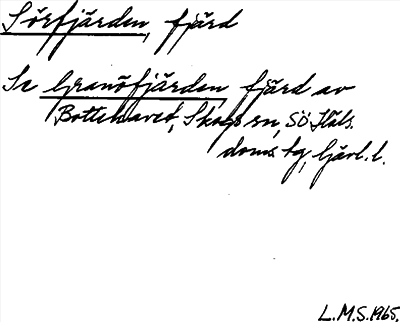 Sörfjärden, fjärd
Se Granöfjärden fjärd av
Bottenhavet, Skogs sn, SÖ Häls.
doms. tg, Gävl. l.
L.M.S. 1965.